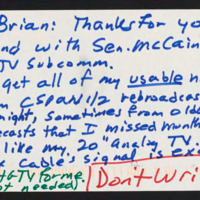 Brian: Thanks for yo
nd with Sen. McCain
TV Subcomm.
get all of my usable n
m CSPAN 1/2 rebroadcas
night, sometimes from olde
ecasts that I missed month
like my 20" Analog TV.
cable's signal is ex
TV for me
not needed.
Don't Wri